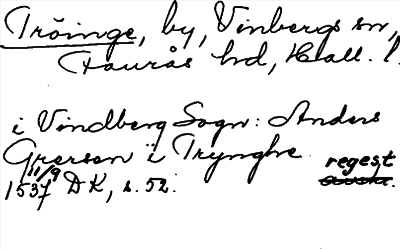 Tröinge, by, Vinbergs sn,
Faurås hd, Hall. l.
i Vindberg Sogn: Anders
Grersen i Trynghe
11/9 regest
1537 DK, s. 52.